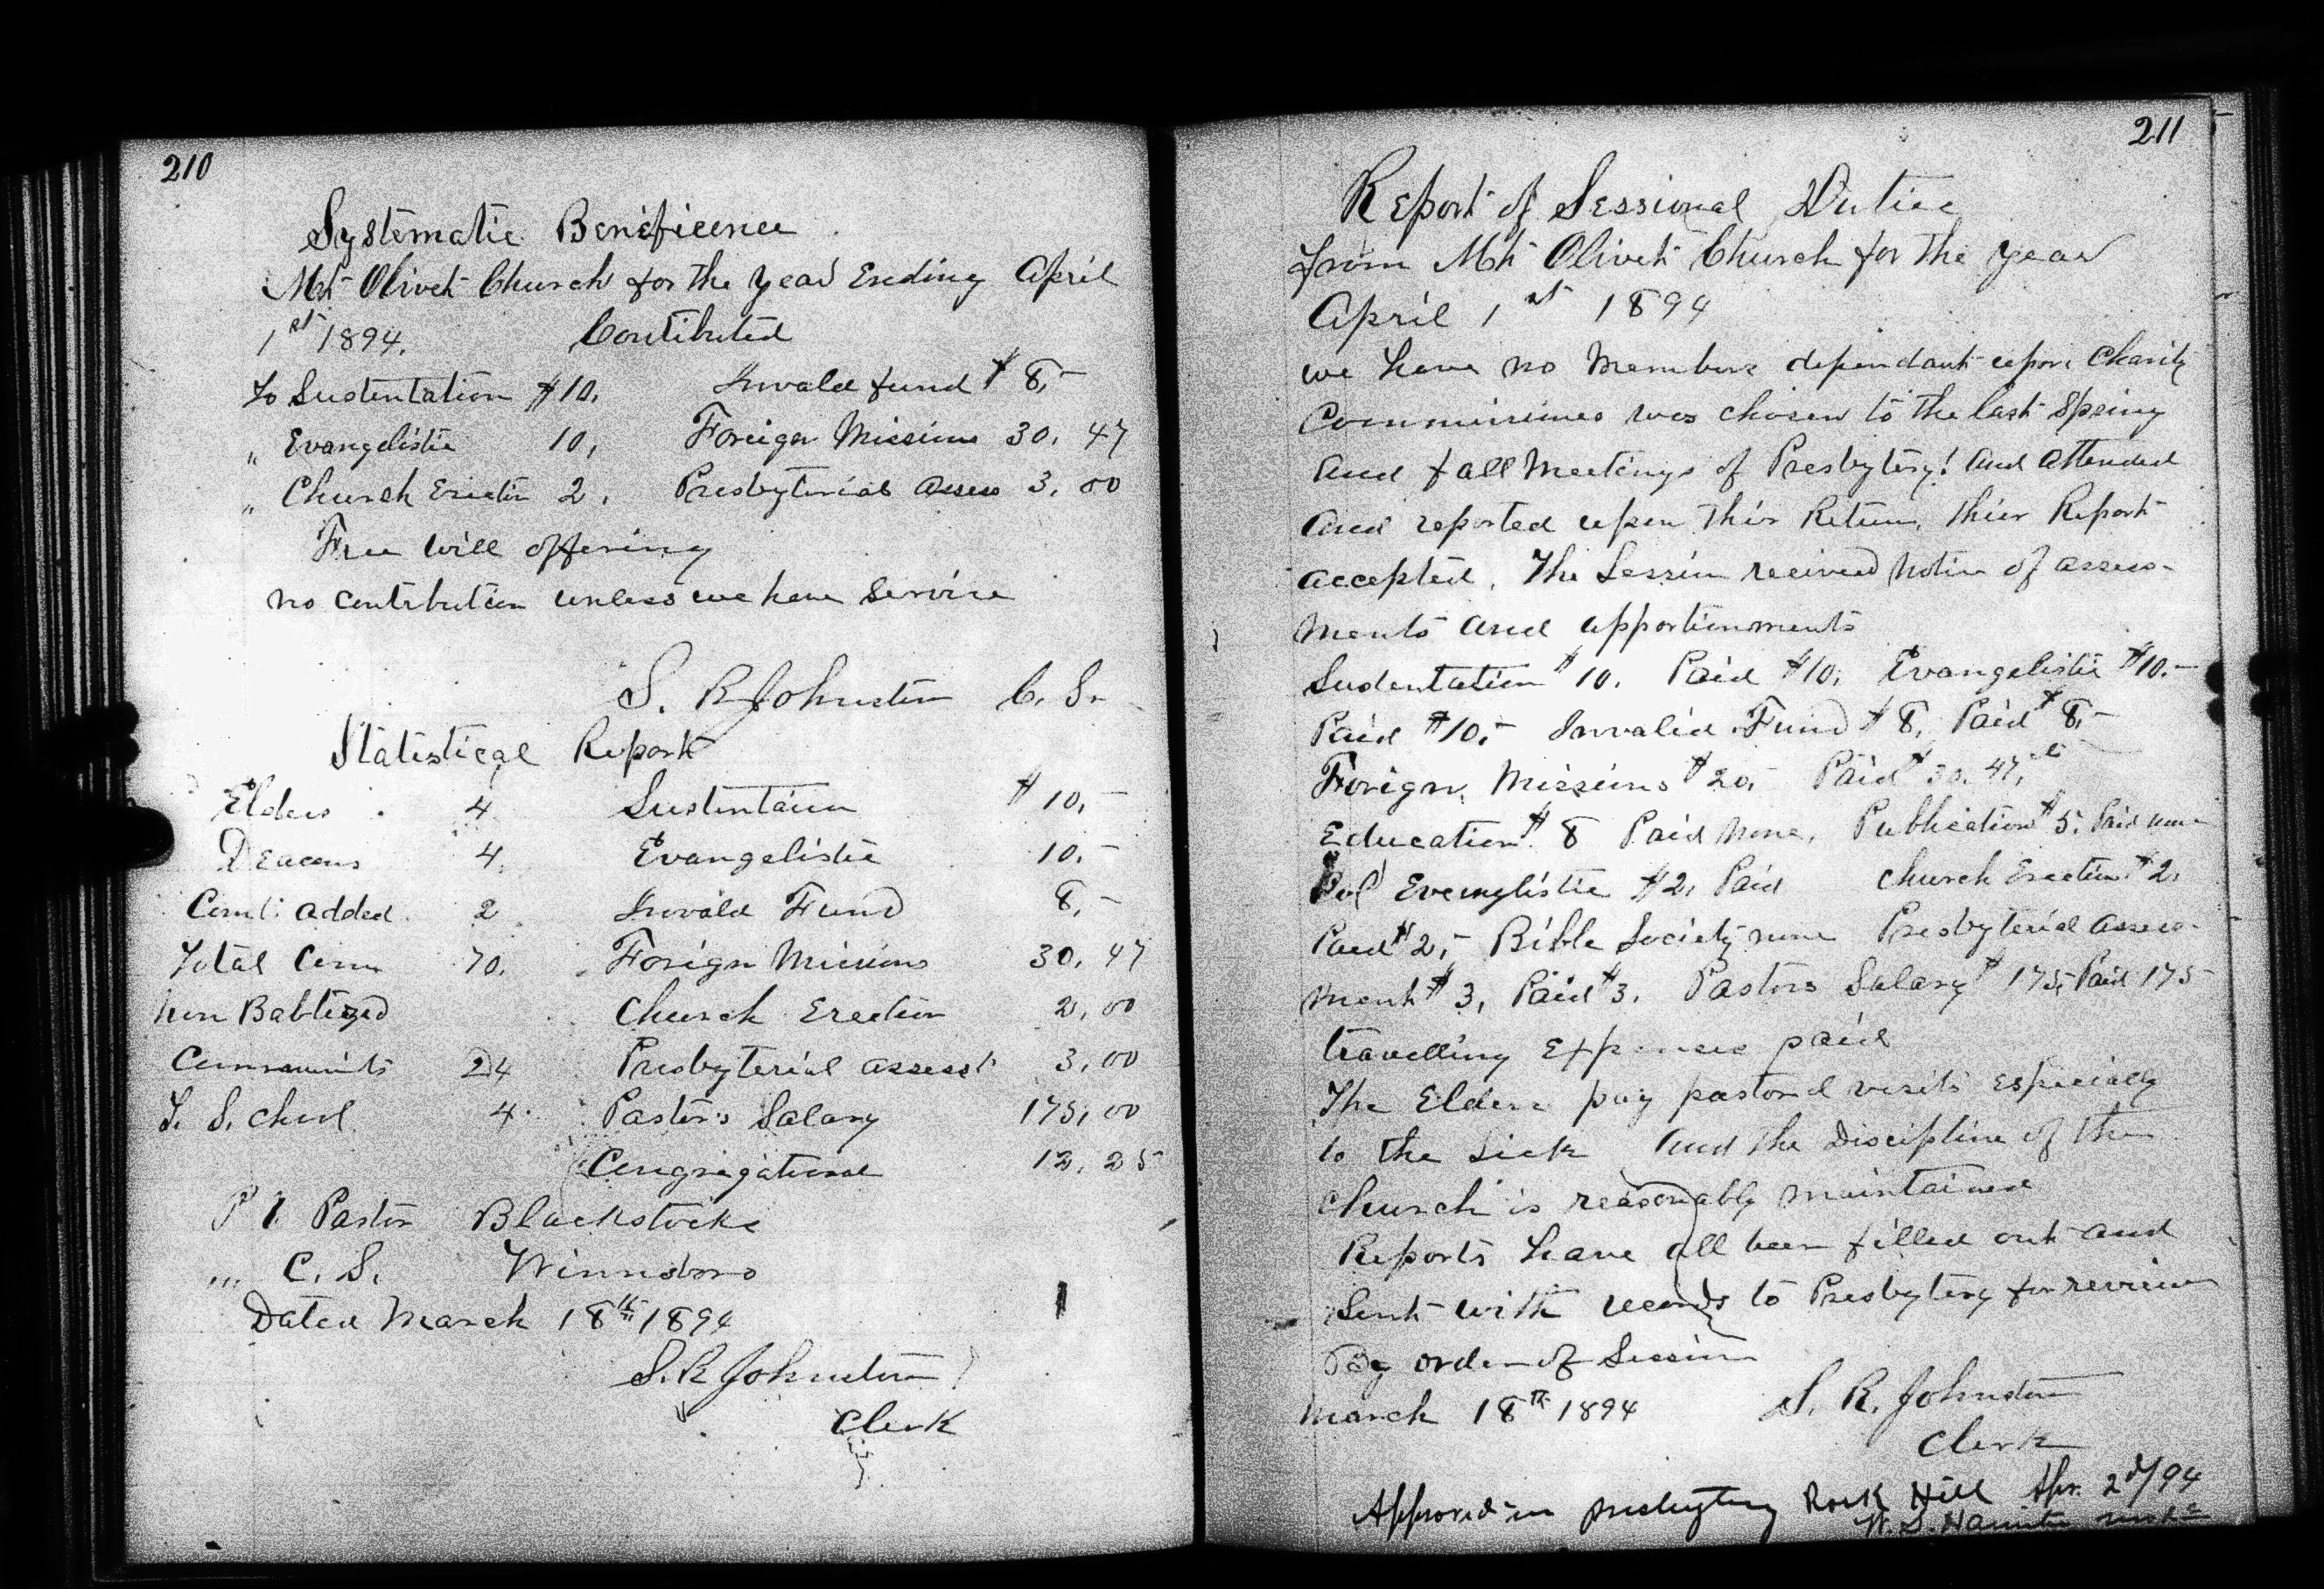 210
Systematic Beneficence
Mt Olivet Church for the year Ending April
1st 1894. Contibuted
To Sustentation $10. Invalid fund $8,-
" Evangelistic 10, Foreign Missions 30, 47
" Church Erection 2, Presbyterial Assess 3, 00
Free will offering
no contribution unless we have Service
S. R Johnston C. S.
Statistical Report
Elders 4 Sustentaion $10,-
Deacons 4, Evangelistic 10.-
Com: added 2 Invalid Fund 8,-
Total Com 70. Forign Missions 30, 47
Non Babtized Church Erection 2,00
Communits 24 Presbyterial assesst 3,00
S. S. chol 4. Pastors Salary 175,00
Congregational 12, 25
P O Pastor Blackstocks
,,, C. S. Winnsboro
Dated March 18th 1894
S. R Johnston
Clerk
211
Report of Sessional Duties
from Mt Olivet Church for the year
April 1st 1894
we have no members dependant upon Charity
was chosen to the last Spring
and fall Meetings of Presbytery! and attended
and reported upon Thir Return, thier Report
accepted, The Session recived notice of assess-
ments and apportionments
Sustentation $10. Paid $10, Evangelistic $10.-
Paid $10,- Invalid Fund $8, Paid $8,-
Forign, Missions $20, Paid $30.47,
Education $8 Paid none, Publication $5, Paid none
Col Evenglistic $2, Paid church Erection $2,
Paid $2,- Bible Society none Presbyterial assess-
ment $3, Paid $3, Pastors Salary $175, Paid 175
travelling Expenses paid
The Elders pay pastoral visits especially
to the sick And the Discipline of the
church is reasonably maintained
Reports have all been filled out and
Sent with records to Presbytery for review
By order of Session
March 18th 1894 S. R. Johnston
Clerk
Approved in presbytery Rock Hill Apr. 2d/94
W. S.